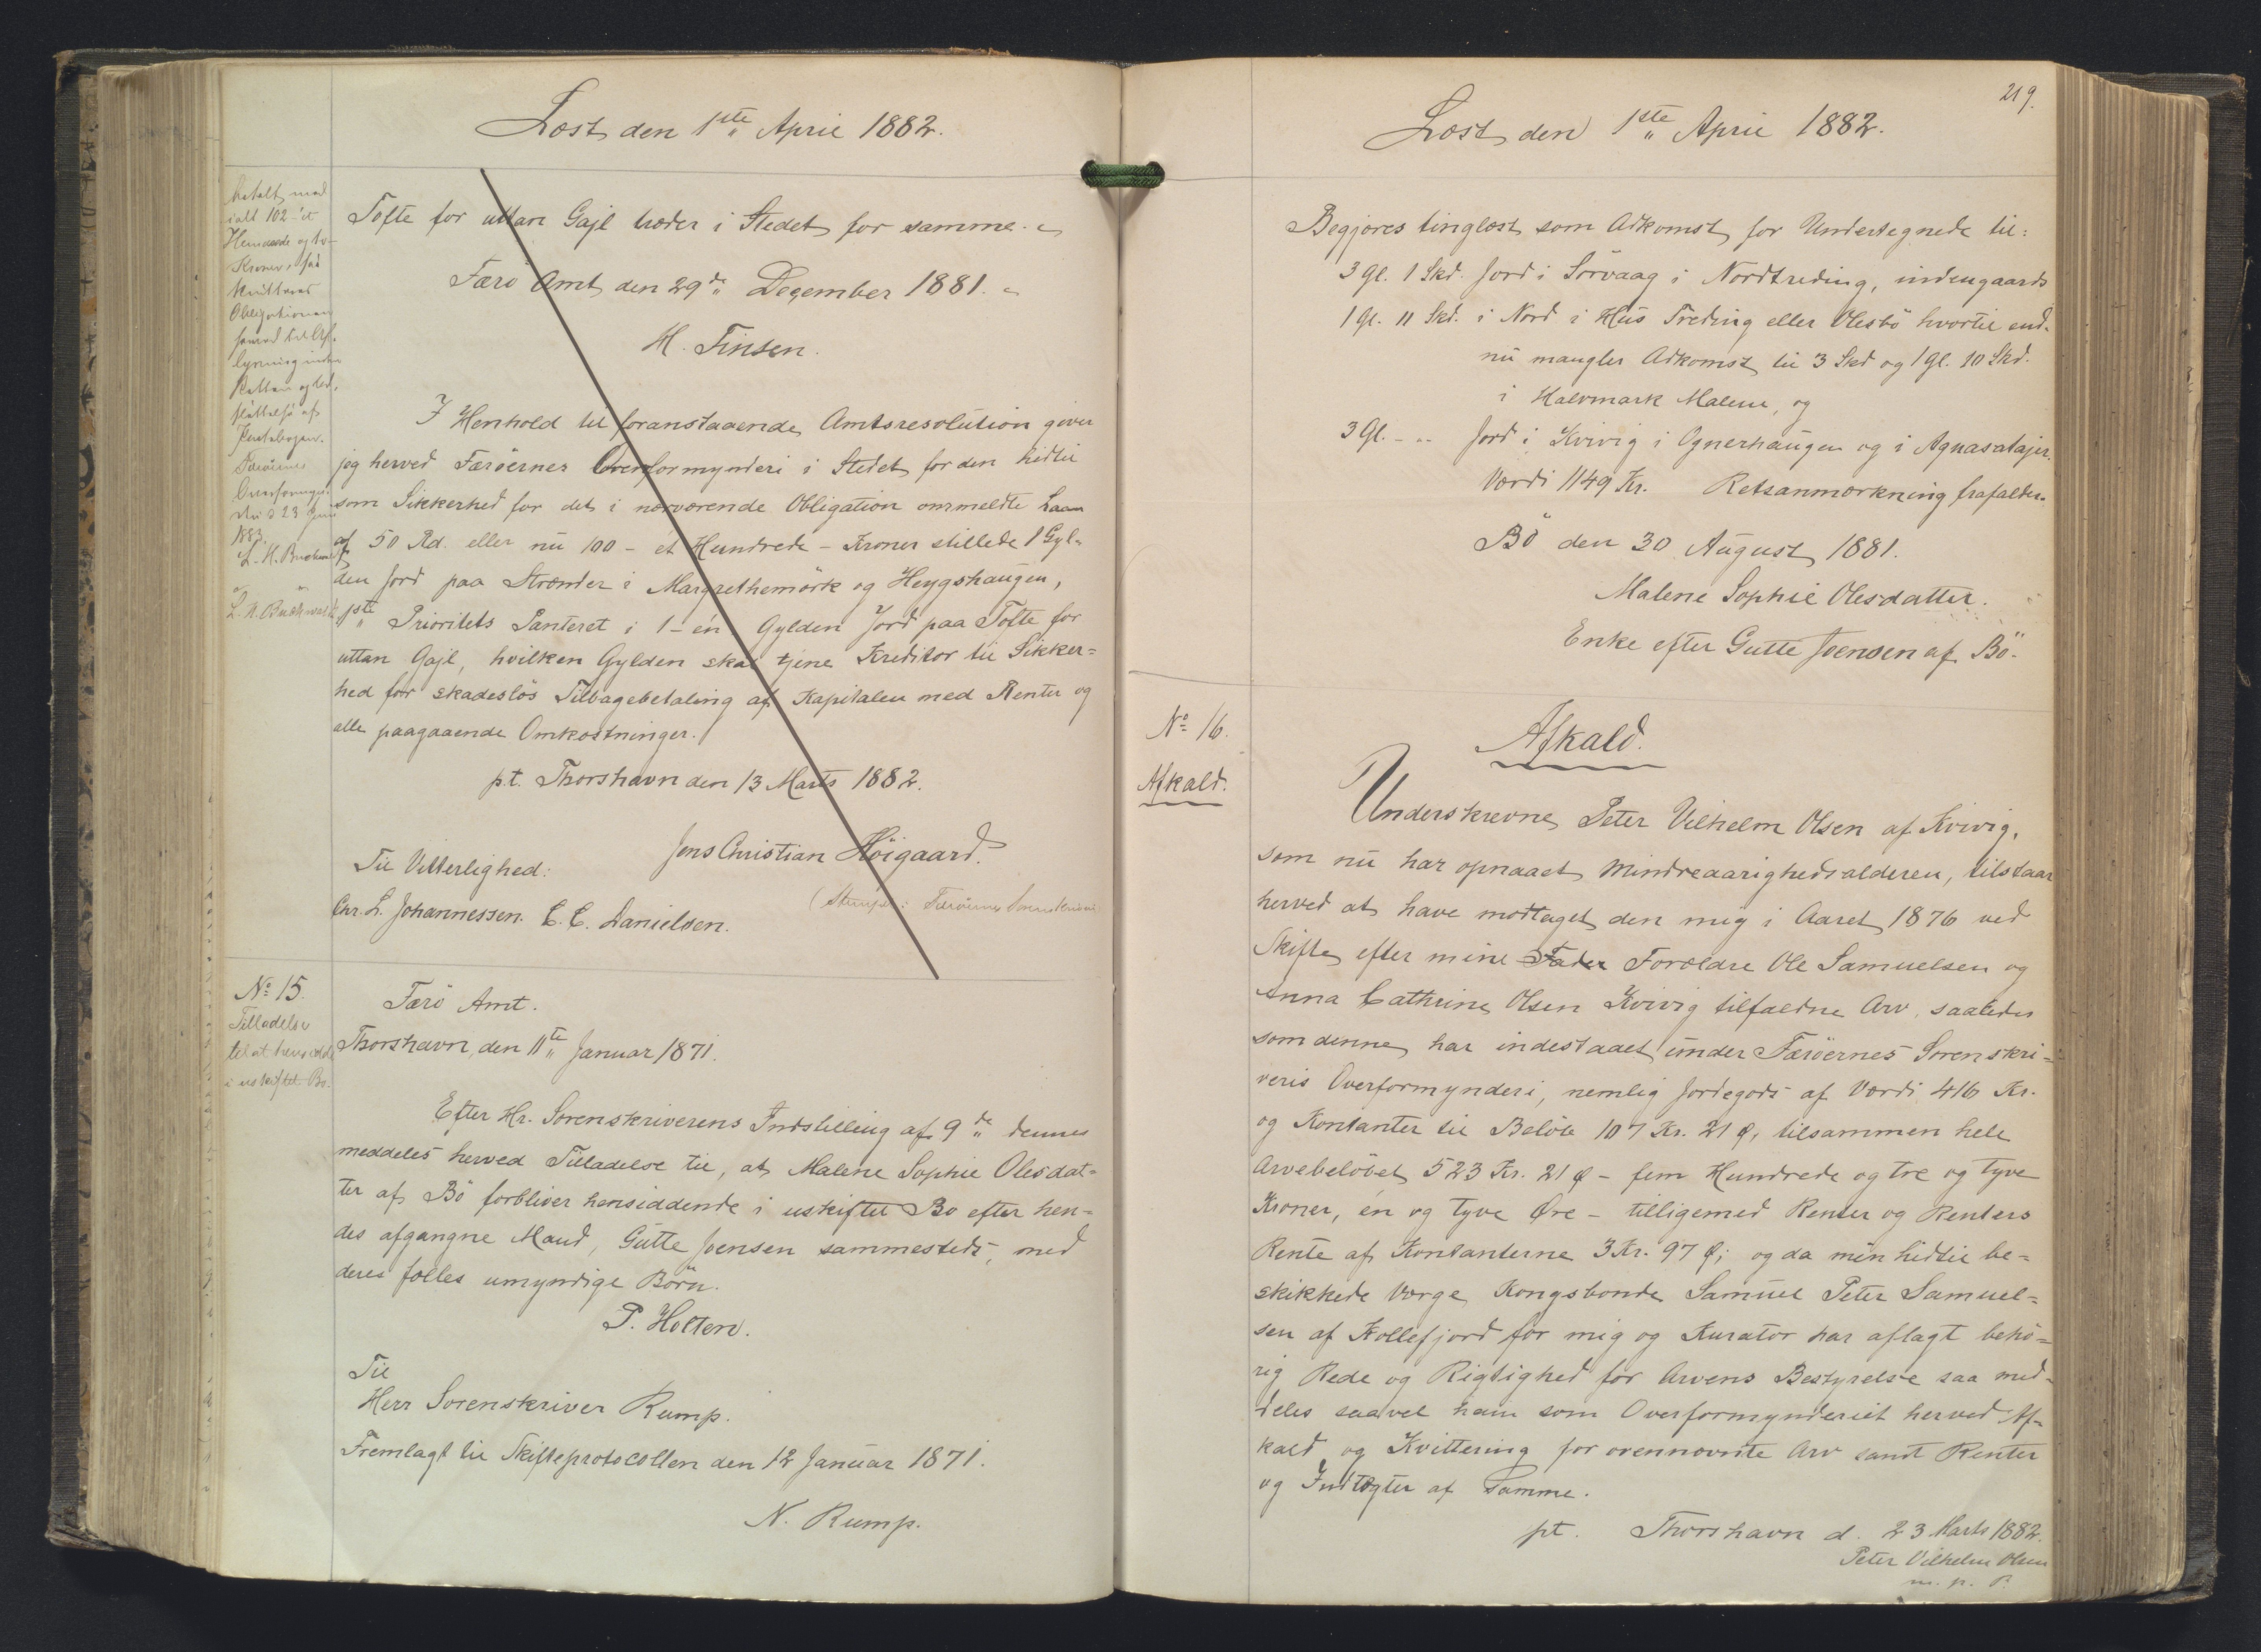 Læst den 1ste April 1882.
betalt med
ialt 102 - et
Hundrede og to
Kroner, saa
kvitteres
Obligationen
lysning inden
Retten og ud-
slettelse af
Pantebogen.
Færöernes
Overformyn-
deri d 23 Juni
1883.
L. H. Buchwaldt
L. H. Buchwaldt
Tofte for uttan Gajl træder i Stedet for samme.
Færö Amt den 29de December 1881.
H. Finsen.
I Henhold til foranstaaende Amtsresolution giver
jeg herved Færöernes Overformynderi i Stedet for den hidtil
som Sikkerhed for det i nærværende Obligation ommeldte Laan
af 50 Rd. eller nu 100 - ét Hundrede - Kroner stillede 1 Gyl-
den Jord paa Strænder i Margrethemörk og Heygshaugen,
1ste Prioritets Panteret i 1 - én Gylden Jord paa Tofte for
uttan Gajl, hvilken Gylden skal tjene Kreditor til Sikker=
hed for skadeslös Tilbagebetaling af Kapitalen med Renter og
alle paagaaende Omkostninger.
p.t. Thorshavn den 13 Marts 1882.
Jens Christian Höigaard.
Til Vitterlighed:
(Stempel: Færöernes Sorenskriveri)
Chr. L. Johannessen. E. E. Danielsen.
No 15.
Tilladelse
til at hensidde
i uskiftet Bo.
Færö Amt.
Thorshavn, den 11te Januar 1871.
Efter Hr. Sorenskriverens Indstilling af 9de dennes
meddeles herved Tilladelse til, at Malene Sophie Olesdat=
ter af Bö forbliver hensiddende i uskiftet Bo efter hen=
des afgangne Mand, Gutte Joensen sammesteds, med
deres fælles umyndige Börn.
P. Holten.
Til
Herr Sorenskriver Rump.
Fremlagt til Skifteprotocollen den 12 Januar 1871.
N. Rump.
219.
Læst den 1ste April 1882.
Begjæres tinglæst som Adkomst for Undertegnede til:
3 Gl. 1 Skd. Jord i Sörvaag i Nordtreding, indengaards
1 Gl. 11 Skd. i Nord i Hus Treding eller Olesbö hvortil end-
nu mangler Adkomst til 3 Skd og 1 Gl. 10 Skd.
i Halvmark Malene, og
3 Gl. - „ Jord i Kvivig i Ognerhaugen og i Agnasatajer.
Værdi 1149 Kr. Retsanmærkning frafaldes.
Bö den 30 August 1881.
Malene Sophie Olesdatter.
Enke efter Gutte Joensen af Bö.
No 16.
Afkald.
Afkald.
Underskrevne Peter Vilhelm Olsen af Kvivig,
som nu har opnaaet Mindreaarighedsalderen, tilstaar
herved at have modtaget den mig i Aaret 1876 ved
Skifte efter mine Fader Forældre Ole Samuelsen og
Anna Cathrine Olsen Kvivig tilfaldne Arv, saaledes
som denne har indestaaet under Færöernes Sorenskri=
veris Overformynderi, nemlig Jordegods af Værdi 416 Kr.
og Kontanter til Belöb 107 Kr. 21 Ø, tilsammen hele
Arvebelöbet 523 Kr. 21 Ø - fem Hundrede og tre og tyve
Kroner, én og tyve Øre - tilligemed Renter og Renters
Rente af Kontanterne 3 Kr. 97 Ø; og da min hidtil be=
skikkede Værge Kongsbonde Samuel Peter Samuel=
sen af Kollefjord for mig og Kurator har aflagt behö=
rig Rede og Rigtighed for Arvens Bestyrelse saa med-
deles saavel ham som Overformynderiet herved Af=
kald og Kvittering for ovennævnte Arv samt Renter
og Indtægter af Samme.
pt. Thorshavn d. 23 Marts 1882.
Peter Vilhelm Olsen
m. p. P.